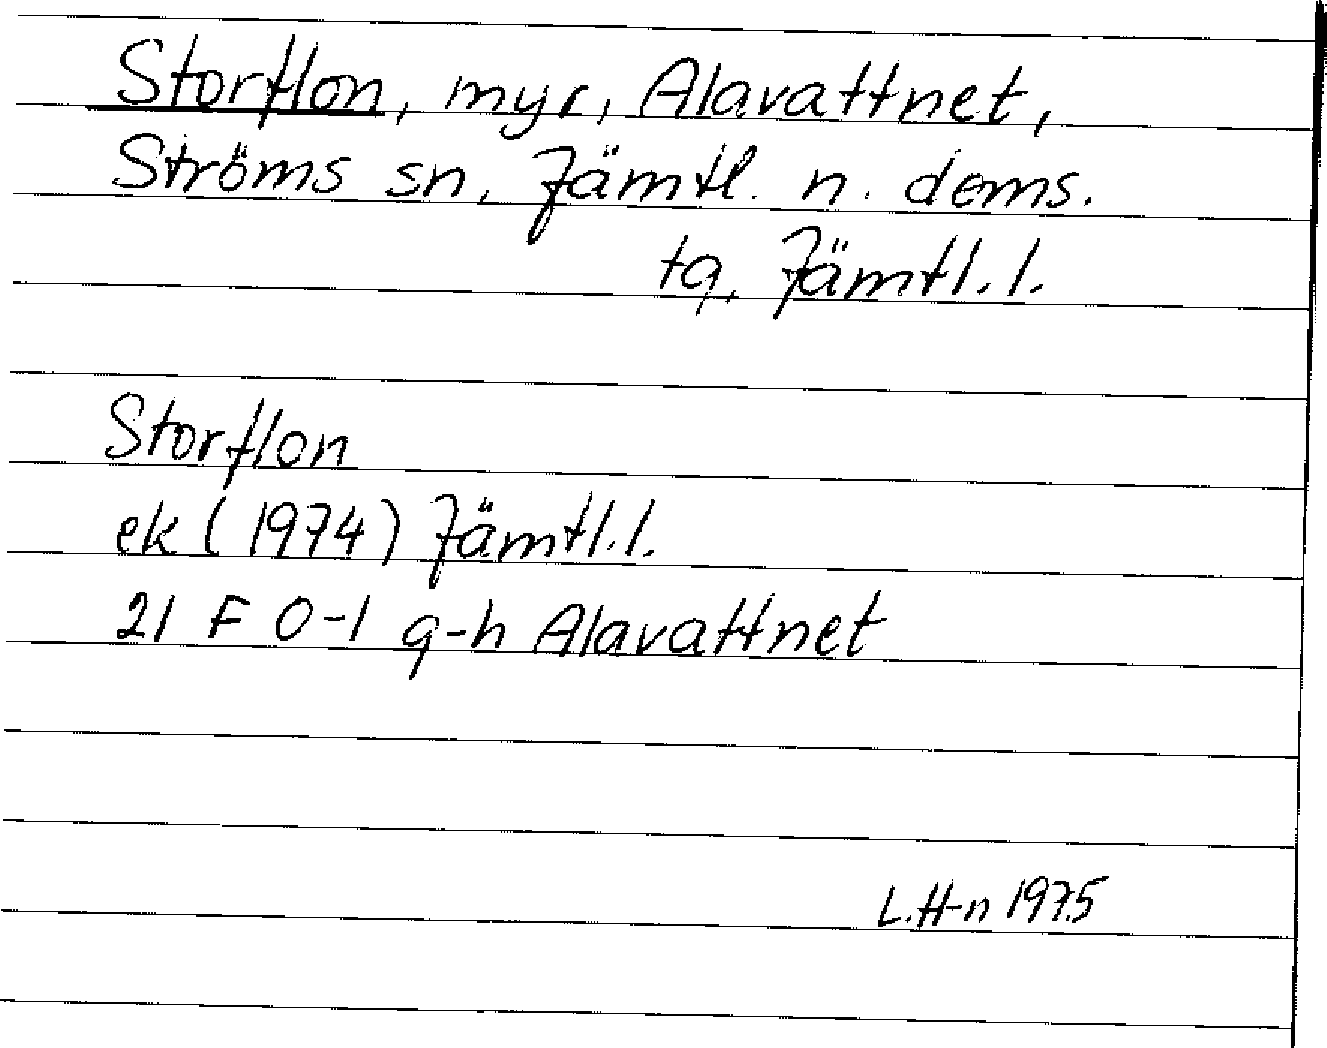 Storflon, myr, Alavattnet,
Ströms sn, Jämtl. n. doms.
tg, Jämtl. l.
Storflon
ek (1974) Jämtl. l.
21 F 0-1 g-h Alavattnet
L.H-n 1975